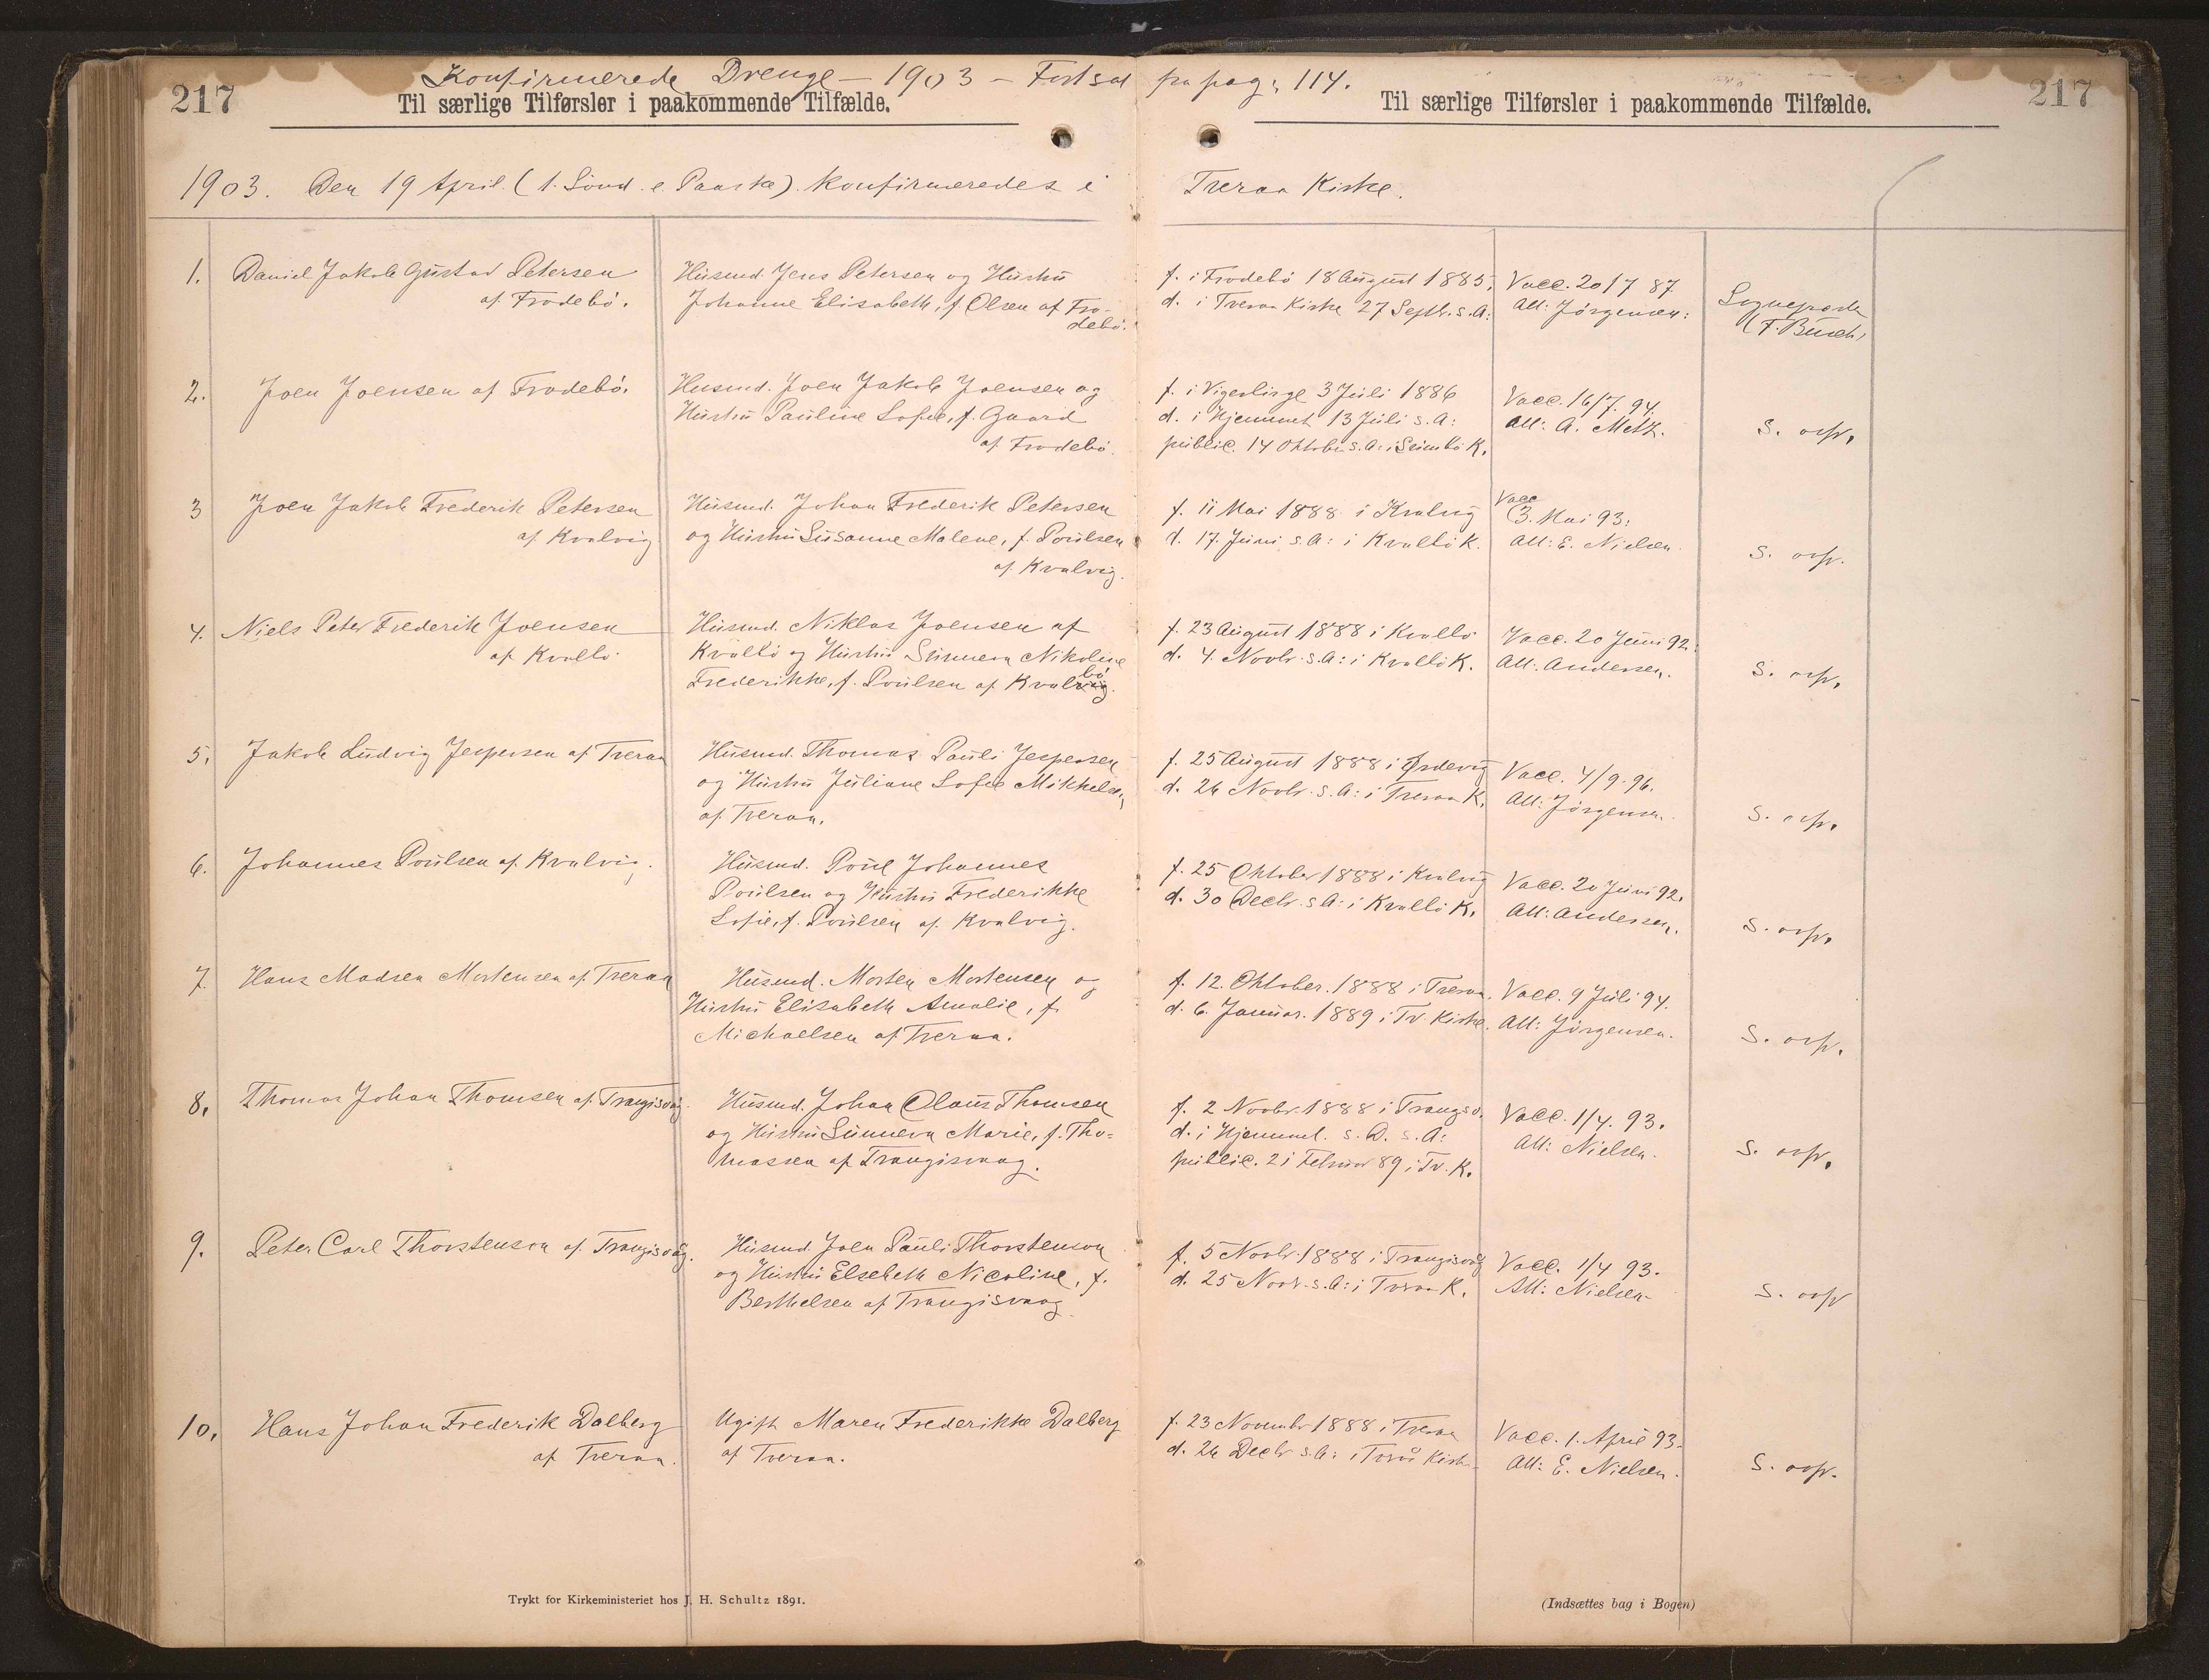 Konfirmerede Drenge - 1903 - Fortsat fra pag: 114.
217
Til særlige Tilførsler i paakommende Tilfælde.
Til særlige Tilførsler i paakommende Tilfælde.
217
1903. Den 19 April (1. Sönd. e. Paaske) konfirmeredes i Tveraa Kirke.
1. Daniel Jakob Gustav Petersen
af Frodebö.
Husmd. Jens Petersen og Hustru
Johanne Elisabeth, f. Olsen af Fro-
debö.
f. i Frodebö 18 August 1885,
d. i Tveraa Kirke 27 Septb. s. A:
Vacc. 20/7 87
Att: Jörgensen:
Sognepræsten
(F. Busch)
2. Joen Joensen af Frodebö.
Husmd. Joen Jakob Joensen og
Hustru Pauline Sofie, f. Gaard
af Frodebö.
f. i Vigerlinge 3 Juli 1886
d. i Hjemmet 13 Juli s. A:
public. 14 Oktober s. A: i Sumbö K.
Vacc. 16/7. 94.
Att: A. Metz.
S. osv.
3 Joen Jakob Frederik Petersen
af Kvalvig
Husmd. Johan Frederik Petersen
og Hustru Susanne Malene, f. Poulsen
af Kvalvig.
f. 11 Mai 1888 i Kvalvig
d. 17. Juni s. A: i Kvalbö K.
Vacc
3. Mai 93:
Att: E. Nielsen.
S. osv.
4. Niels Peter Frederik Joensen
af Kvalbö
Husmd. Niklas Joensen af
Kvalbö og Hustru Sunneva Nikoline
bö
Frederikke, f. Poulsen af Kvalvig.
f. 23 August 1888 i Kvalbö
d. 4. Novbr. s. A: i Kvalbö K.
Vacc. 20 Juni 92:
Att. Andersen.
S. osv.
5. Jakob Ludvig Jespersen af Tveraa
Husmd. Thomas Pauli Jespersen
og Hustru Juliane Sofie Mikkelsen,
af Tveraa.
f. 25 August 1888 i Ørdevig
d. 26 Novbr. s. A: i Tveraa K.
Vacc. 4/9. 96.
Att: Jörgensen.
S. osv.
6. Johannes Poulsen af Kvalvig.
Husmd. Poul Johannes
Poulsen og Hustru Frederikke
Sofie, f. Poulsen af Kvalvig.
f. 25 Oktober 1888 i Kvalvig
d. 30 Decbr. s. A: i Kvalbö K.
Vacc. 20 Juni 92.
Att: Andersen.
S. osv.
7. Hans Madsen Mortensen af Tveraa
Husmd. Morten Mortensen og
Hustru Elisabeth Amalie, f.
Michaelsen af Tveraa.
f. 12. Oktober. 1888 i Tveraa.
d. 6. Januar. 1889 i Tv. Kirke.
Vacc. 9 Juli 94.
Att: Jörgensen.
S. osv.
8. Thomas Johan Thomsen af Trangisvåg.
Husmd. Johan Olaus Thomsen
og Hustru Sunneva Marie, f. Tho=
massen af Trangisvaag.
f. 2 Novbr. 1888 i Trangsv.
d. i Hjemmet. s. D. s. A:
public. 21 Februar 89 i Tv. K.
Vacc. 1/4. 93.
Att: Nielsen.
S. osv.
9. Peter Carl Thorstensen af Trangisvåg.
Husmd. Joen Pauli Thorstenson
og Hustru Elsebeth Nicoline, f.
Berthelsen af Trangisvaag.
f. 5 Novbr. 1888 i Trangisvåg
d. 25 Novbr. s. A: i Tveraa K.
Vacc. 1/4 93.
Att: Nielsen
S. osv
10. Hans Johan Frederik Dalberg
af Tveraa.
Ugift Maren Frederikke Dalberg
af Tveraa.
f. 23 Novembr 1888 i Tveraa
d. 26 Decbr s. A: i Tverå Kirke
Vacc. 1. April 93.
Att: E. Nielsen.
S. osv.
Trykt for Kirkeministeriet hos J. H. Schultz 1891.
(Indsættes bag i Bogen)